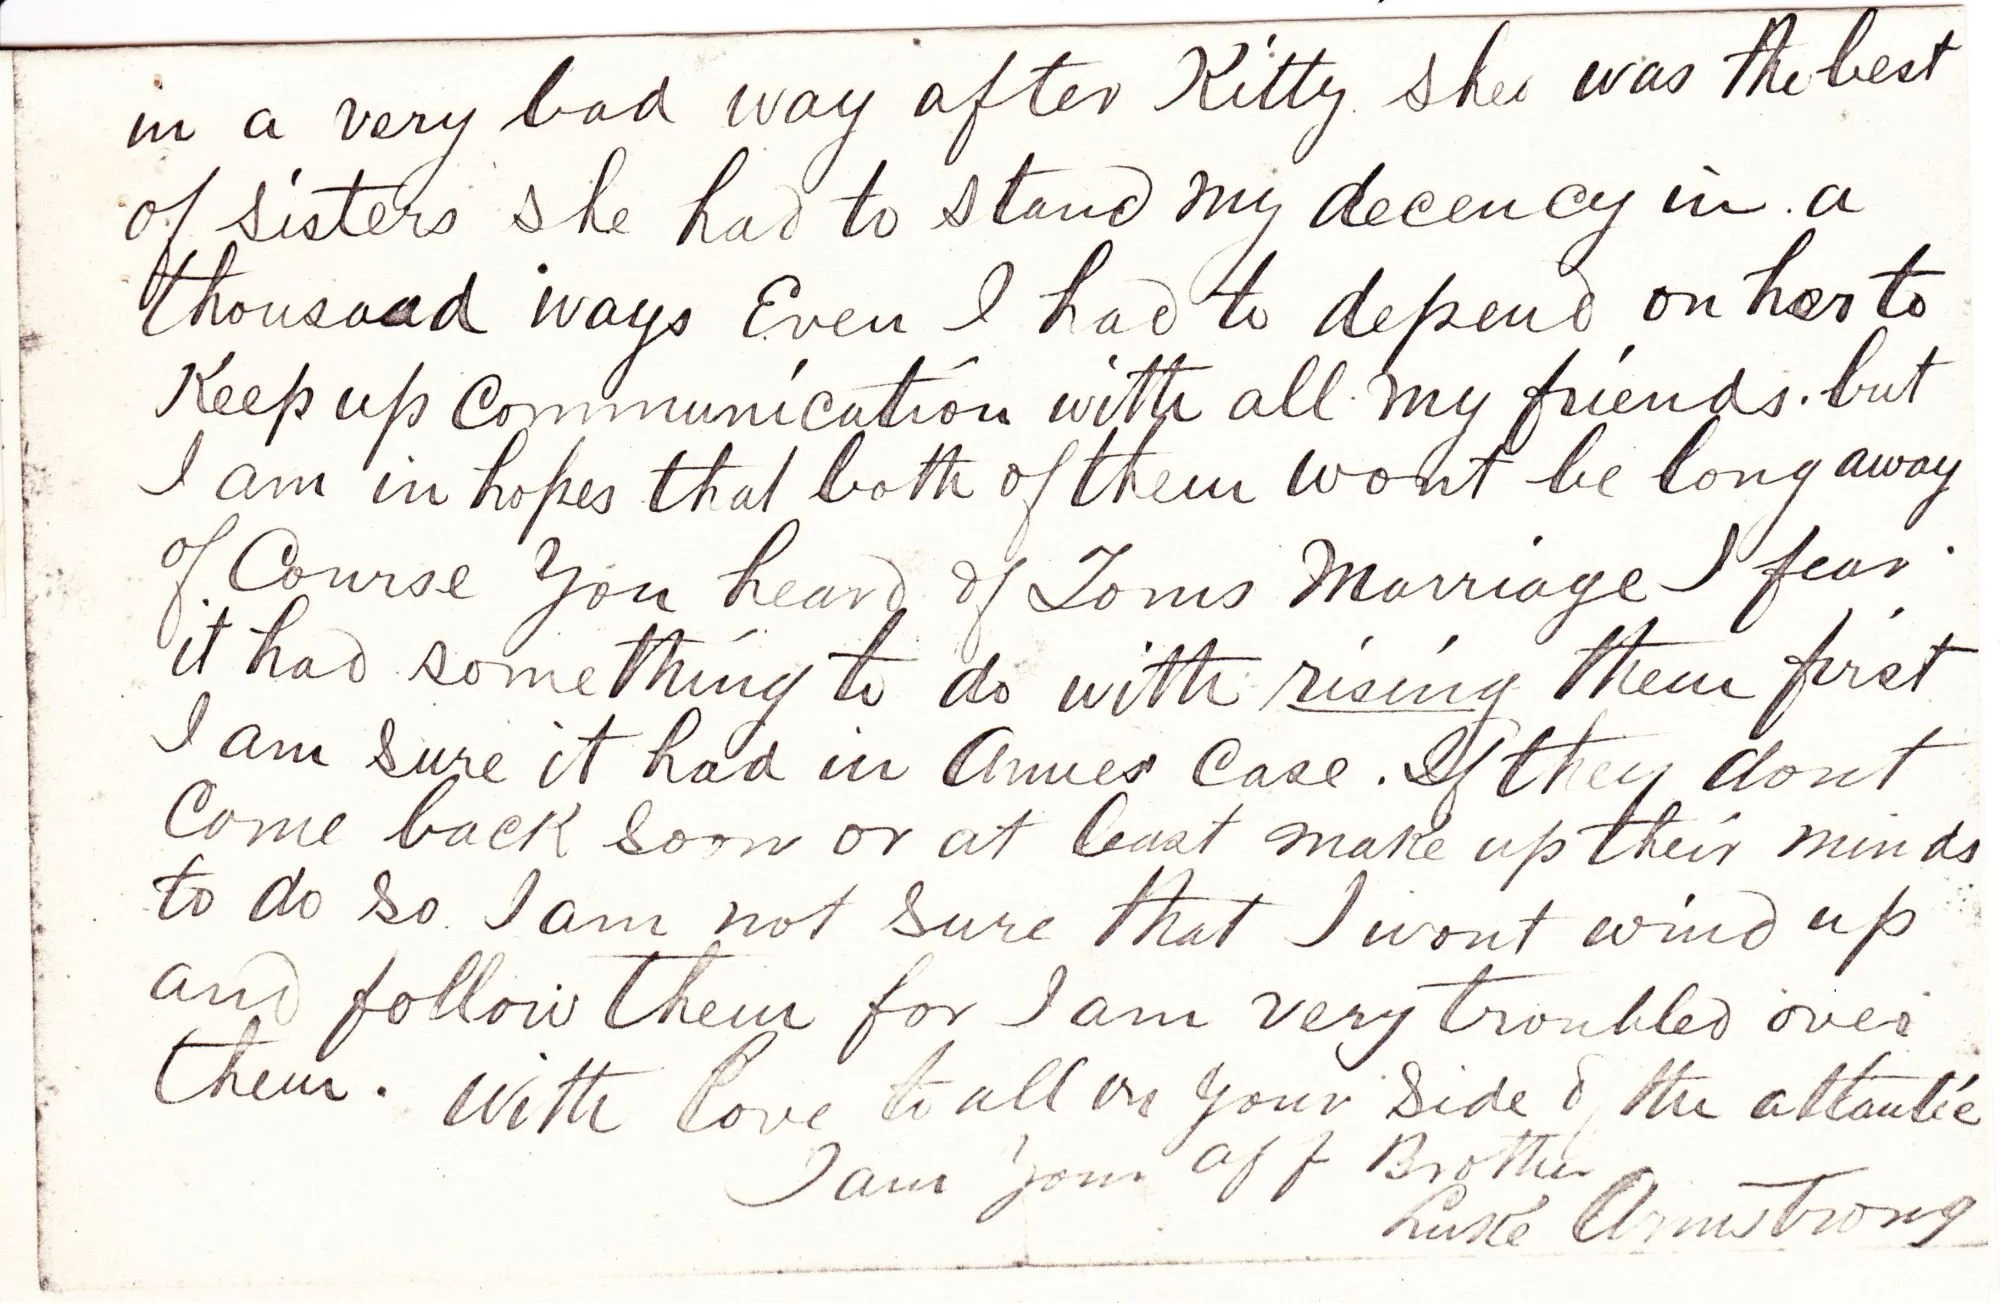 in a very bad way after Kitty she was the best
of sisters she had to stand my decency in a
thousand ways Even I had to depend on her to
Keep up Communication with all my friends. but
I am in hopes that both of them wont be long away
of Course you heard of Toms Marriage I fear
it had something to do with rising them first
I am sure it had in Annes Case. If they dont
Come back soon or at least make up their minds
to do so I am not sure that I wont wind up
and follow them for I am very troubled over
them. With love to all on your side of the atlantic
I am your aff Brother
Luke Armstrong